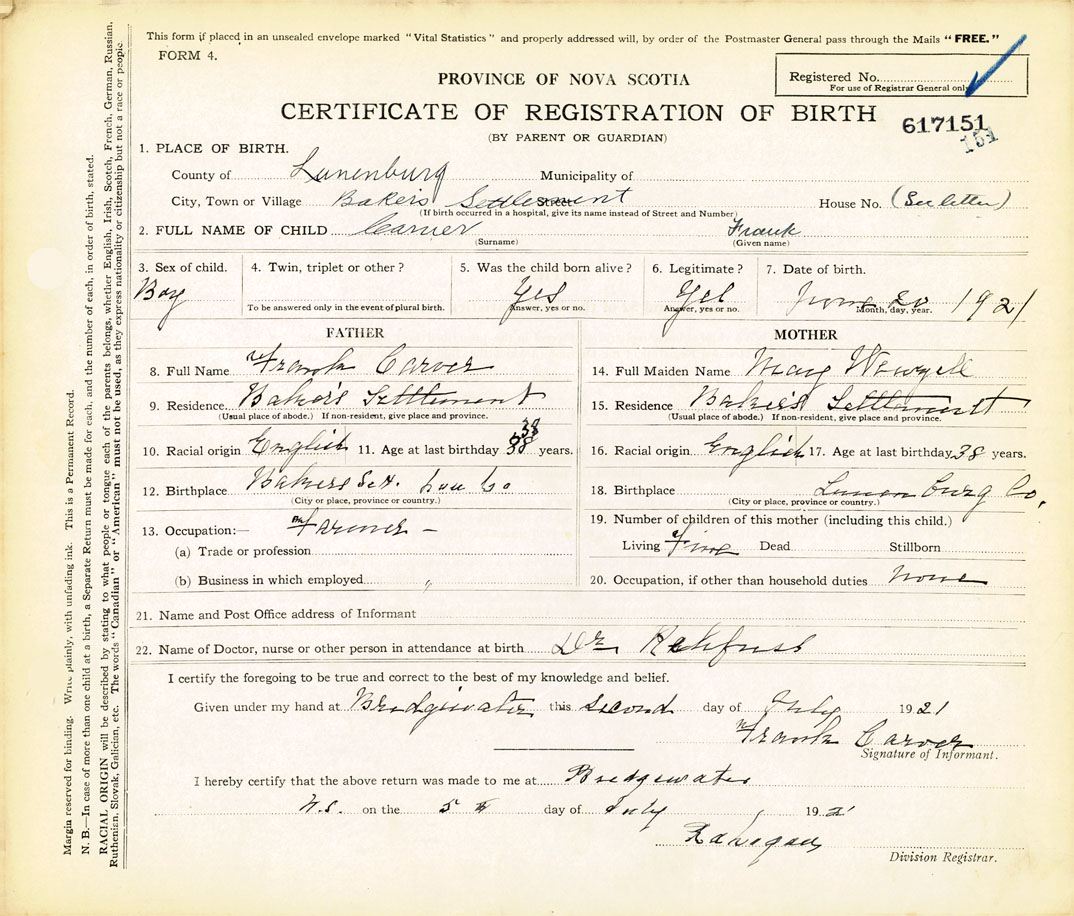 This form if placed in an unsealed envelope marked "Vital Statistics" and properly addressed will, by order of the Postmaster General pass through the Mails "FREE."
FORM 4.
PROVINCE OF NOVA SCOTIA
Registered No.
For use of Registrar General only
CERTIFICATE OF REGISTRATION OF BIRTH
617151
151
(BY PARENT OR GUARDIAN)
1. PLACE OF BIRTH.
County of Lunenburg Municipality of
City, Town or Village Bakers Settlement Street House No. (See letter)
(If birth occurred in a hospital, give its name instead of Street and Number)
2. FULL NAME OF CHILD Carver Frank
(Surname) (Given name)
3. Sex of child. 4. Twin, triplet or other? 5. Was the child born alive? 6. Legitimate? 7. Date of birth.
Boy Yes Yes 20 1921
To be answered only in the event of plural birth. Answer, yes or no. Answer, yes or no. Month, day, year.
FATHER
8. Full Name Frank Carver
9. Residence Baker's Settlement
(Usual place of abode.) If non-resident, give place and province.
38
10. Racial origin English 11. Age at last birthday 38 years.
12. Birthplace Bakers Set. Lun Co
(City or place, province or country.)
13. Occupation:— Farmer —
(a) Trade or profession
(b) Business in which employed "
MOTHER
14. Full Maiden Name Mary
15. Residence Baker's Settlement
(Usual place of abode.) If non-resident, give place and province.
16. Racial origin English 17. Age at last birthday 38 years.
18. Birthplace Lunenburg Co.
(City or place, province or country.)
19. Number of children of this mother (including this child.)
Living Five Dead Stillborn
20. Occupation, if other than household duties none
21. Name and Post Office address of Informant
22. Name of Doctor, nurse or other person in attendance at birth Dr Rehfuss
I certify the foregoing to be true and correct to the best of my knowledge and belief.
Given under my hand at Bridgewater this second day of July 1921
Frank Carver
Signature of Informant.
I hereby certify that the above return was made to me at Bridgewater
N.S. on the 5th day of July 192
Division Registrar.
Margin reserved for binding. Write plainly, with unfading ink. This is a Permanent Record.
N. B.—In case of more than one child at a birth, a Separate Return must be made for each, and the number of each, in order of birth, stated.
RACIAL ORIGIN will be described by stating to what people or tongue each of the parents belongs, whether English, Irish, Scotch, French, German, Russian,
Ruthenian, Slovak, Galician, etc. The words "Canadian" or "American" must not be used, as they express nationality or citizenship but not a race or people.